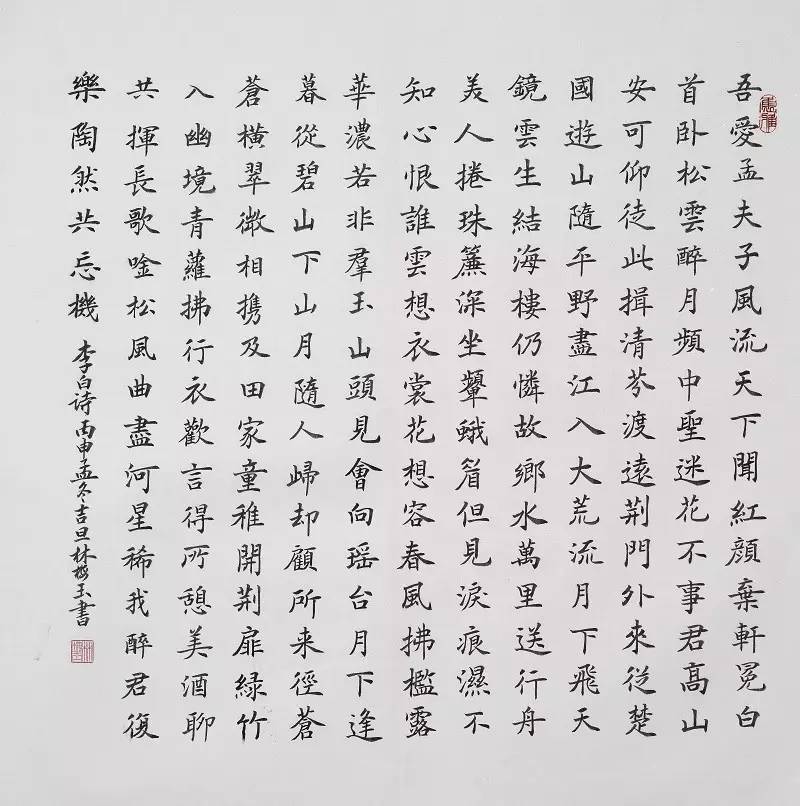 吾愛孟夫子風流天下聞紅顏棄軒冕白
首卧松雲醉月頻中聖迷花不事君高山
安可仰徒此揖清芬渡遠荆門外來從楚
國遊山隨平野盡江入大荒流月下飛天
鏡雲生結海樓仍憐故鄉水萬里送行舟
美人捲珠簾深坐顰蛾眉但見淚痕濕不
知心恨誰雲想衣裳花想容春風拂檻露
華濃若非羣玉山頭見會向瑶台月下逢
暮從碧山下山月隨人歸却顧所來徑蒼
蒼橫翠微相携及田家童稚開荆扉緑竹
入幽境青蘿拂行衣歡言得所憩美酒聊
共揮長歌唫松風曲盡河星稀我醉君復
樂陶然共忘機
李白诗丙申孟冬吉旦林玉書